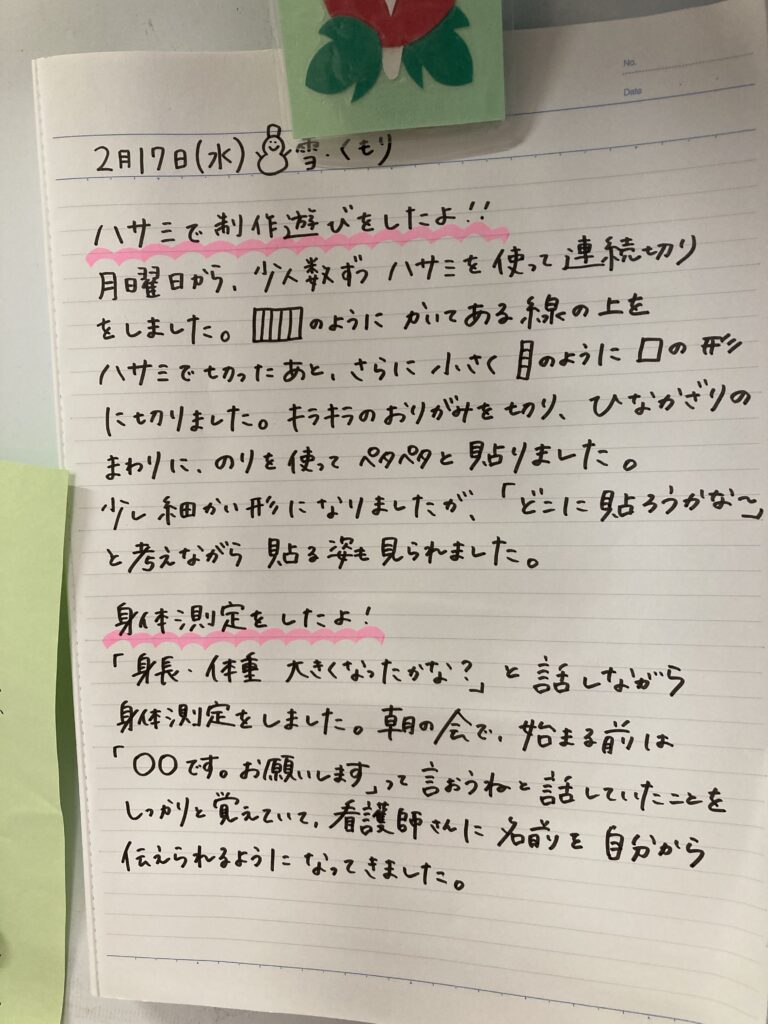 No.
Date
2月17日(水) 雪・くもり
ハサミで制作遊びをしたよ!!
月曜日から、少人数ずつ ハサミを使って連続切り
をしました。 のように かいてある線の上を
ハサミで切ったあと、さらに 小さく のように 口の形
に切りました。キラキラのおりがみを切り、ひなかざりの
まわりに、のりを使って ペタペタと貼りました。
少し細かい形になりましたが、「どこに貼ろうかな〜」
と考えながら 貼る姿も見られました。
身体測定をしたよ!
「身長・体重 大きくなったかな?」と話しながら
身体測定をしました。朝の会で、始まる前は
「〇〇です。お願いします」って言おうねと話していたことを
しっかりと覚えていて、看護師さんに名前を自分から
伝えられるようになってきました。